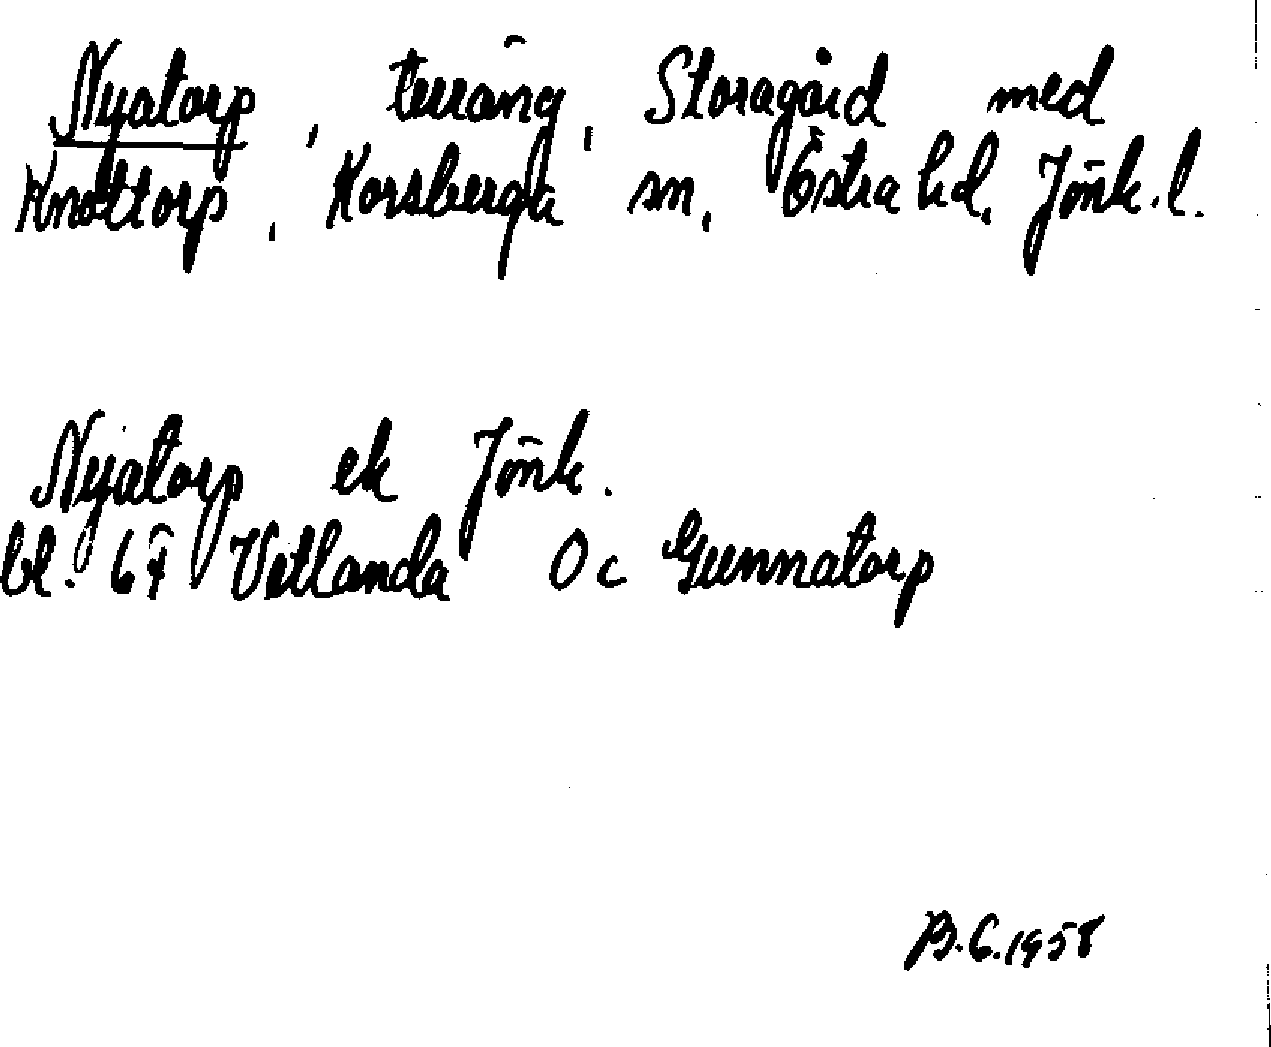 Nyatorp, terräng, Storagård med
Knottorp, Korsberga sn, Östra hd, Jönk. l.
Nyatorp ek Jönk.
bl. 67 Vetlanda 0 c Gunnatorp
B.G. 1958